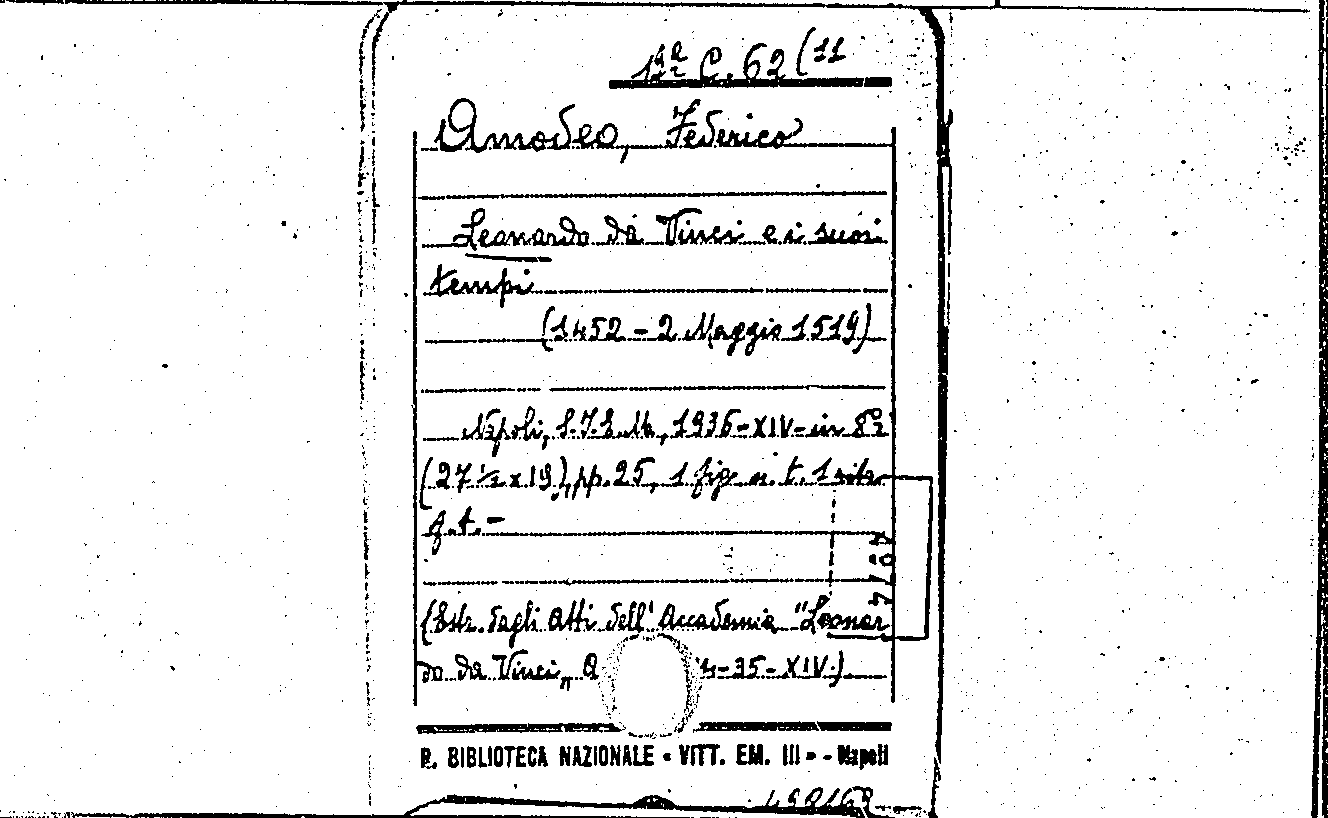 1ª C. 62 (11
Amodeo, Federico
Leonardo da Vinci e i suoi
tempi
(1452 - 2 Maggio 1519)
Napoli, S.I.E.M., 1936-XIV- in 8º
(27 ½ x 19), pp. 25, 1 fig. n. t. 1 ritr.
f. t. -
(Estr. dagli Atti dell' Accademia "Leonar
do da Vinci„ 4-35-XIV.)
R. BIBLIOTECA NAZIONALE « VITT. EM. III » - Napoli